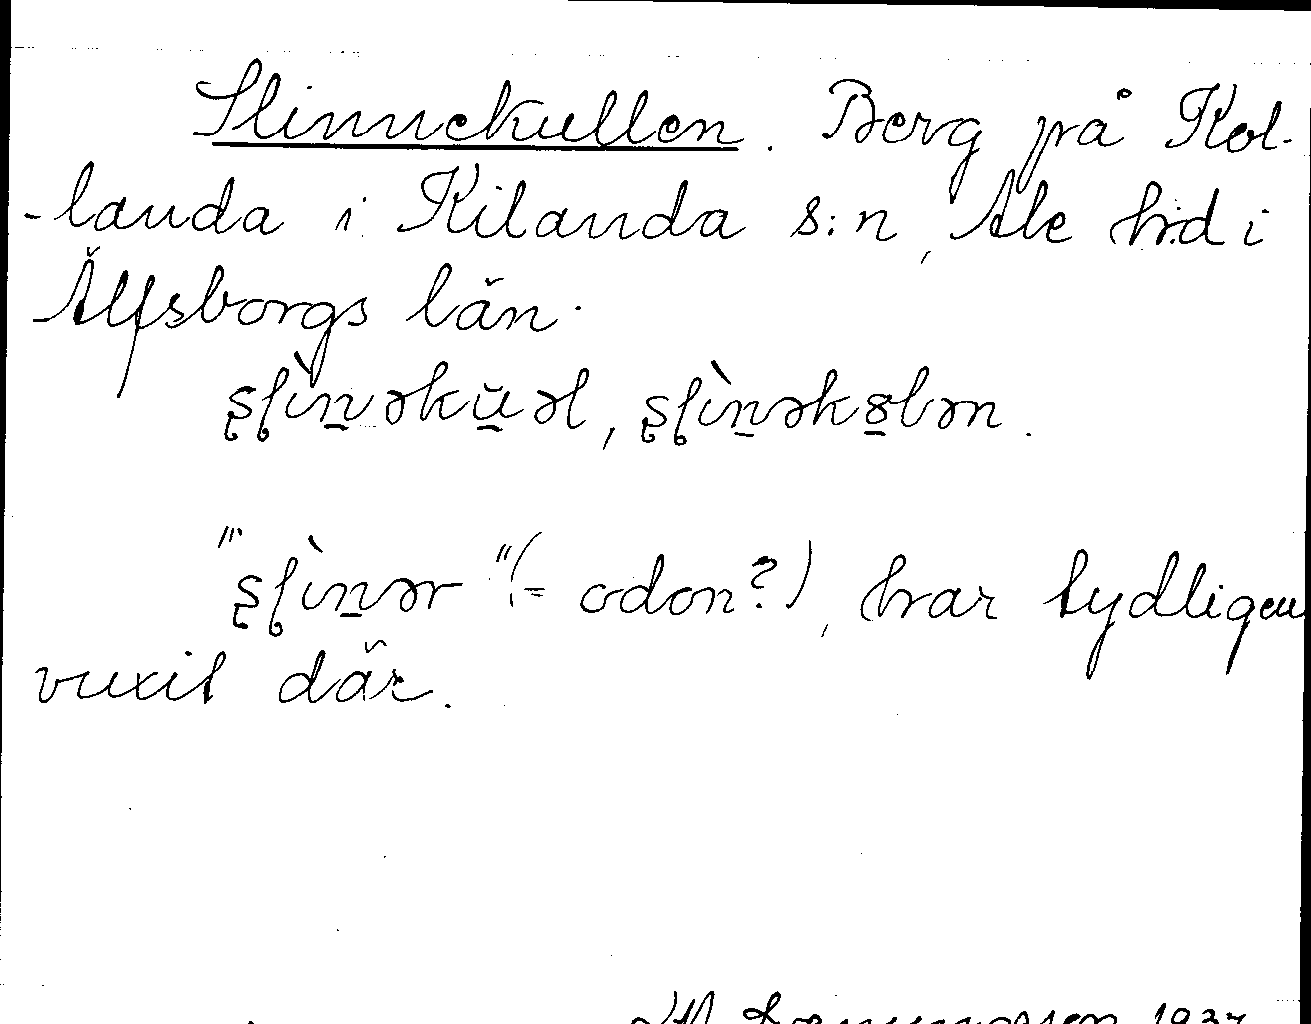 Slinnekullen. Berg på Kol-
-landa i Kilanda s:n, Ale hd i
Älfsborgs län.
ʂʃìn̠əkŭ̠əl, ʂʃìn̠ək8̠lən.
"ʂʃìn̠ər" (= odon?), har tydligen
vuxit där.
1937